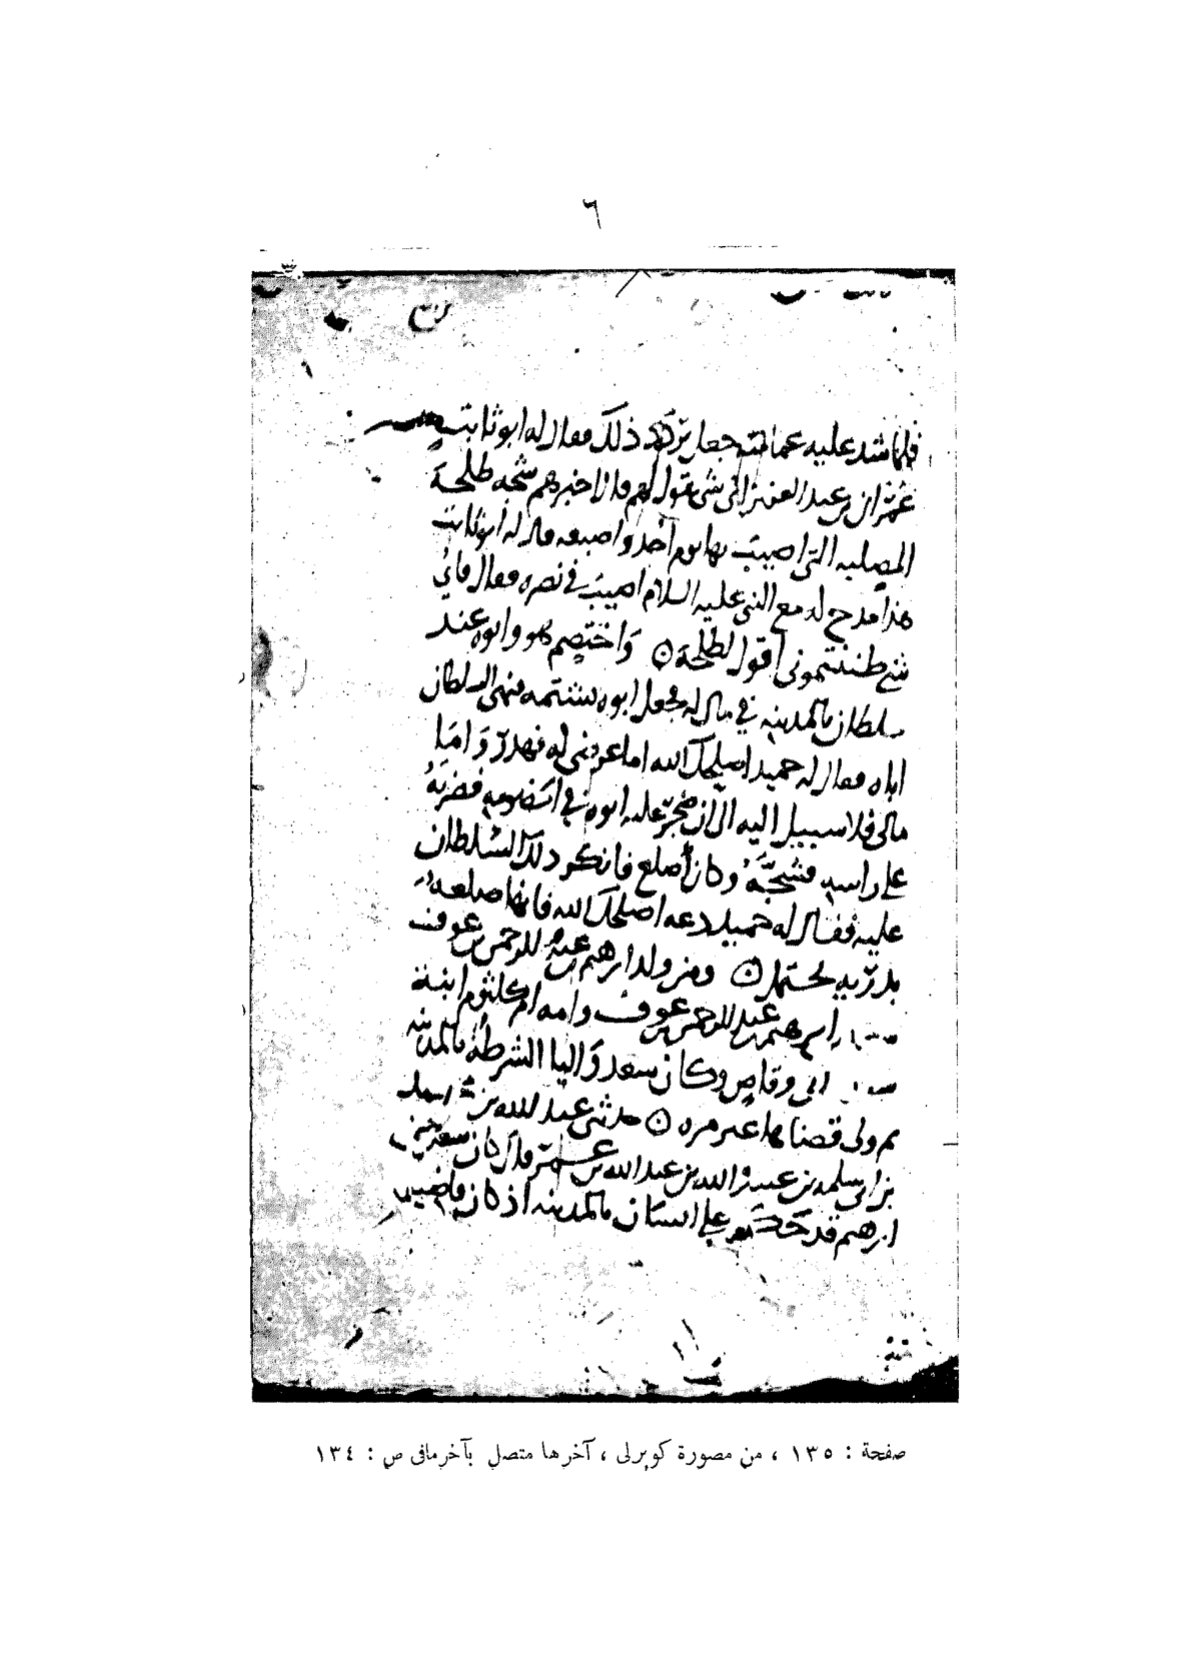 ٦
فلما شد عليه عمامته جعل يردد ذلك فقال له ابو ثابت
عمران بن عبد العزيز الى شي يقول لهم قال اخبرهم شجه طلحة
المصلبه التى اصيب بها يوم احد واصبعه قال له ابو ثابت
هذا مدح له مع النبى عليه السلام اصيب في نصره فقال فاي
شي ظننتمونى اقول لطلحة ن واختصم هو وابوه عند
سلطان بالمدينه في مال له فجعل ابوه يشتمه فنهى السلطان
اباه فقال له حميد اصلحك الله اما عرضى له فهدر واما
مالى فلا سبيل اليه الى ان ضجر عليه ابوه في
على راسه فشجه وكان اصلع فانكر ذلك السلطان
عليه فقال له حميد دعه اصلحك الله فانها صلعه
ن ومن ولد ابرهيم بن عبد الرحمن بن عوف
ابرهيم بن عبد الرحمن بن عوف وامه ام كلثوم ابنة
سعد بن ابى وقاص وكان سعد واليا الشرطة بالمدينه
ثم ولى قضاها غير مره ن حدثنى عبد الله بن
بن ابى سلمه بن عبيد الله بن عبد الله بن عمر قال كان سعد بن
ابرهيم قد على انسان بالمدينه اذ كان قاضيا
صفحة : ١٣٥ ، من مصورة كوپرلى ، آخرها متصل بآخر مافى ص : ١٣٤